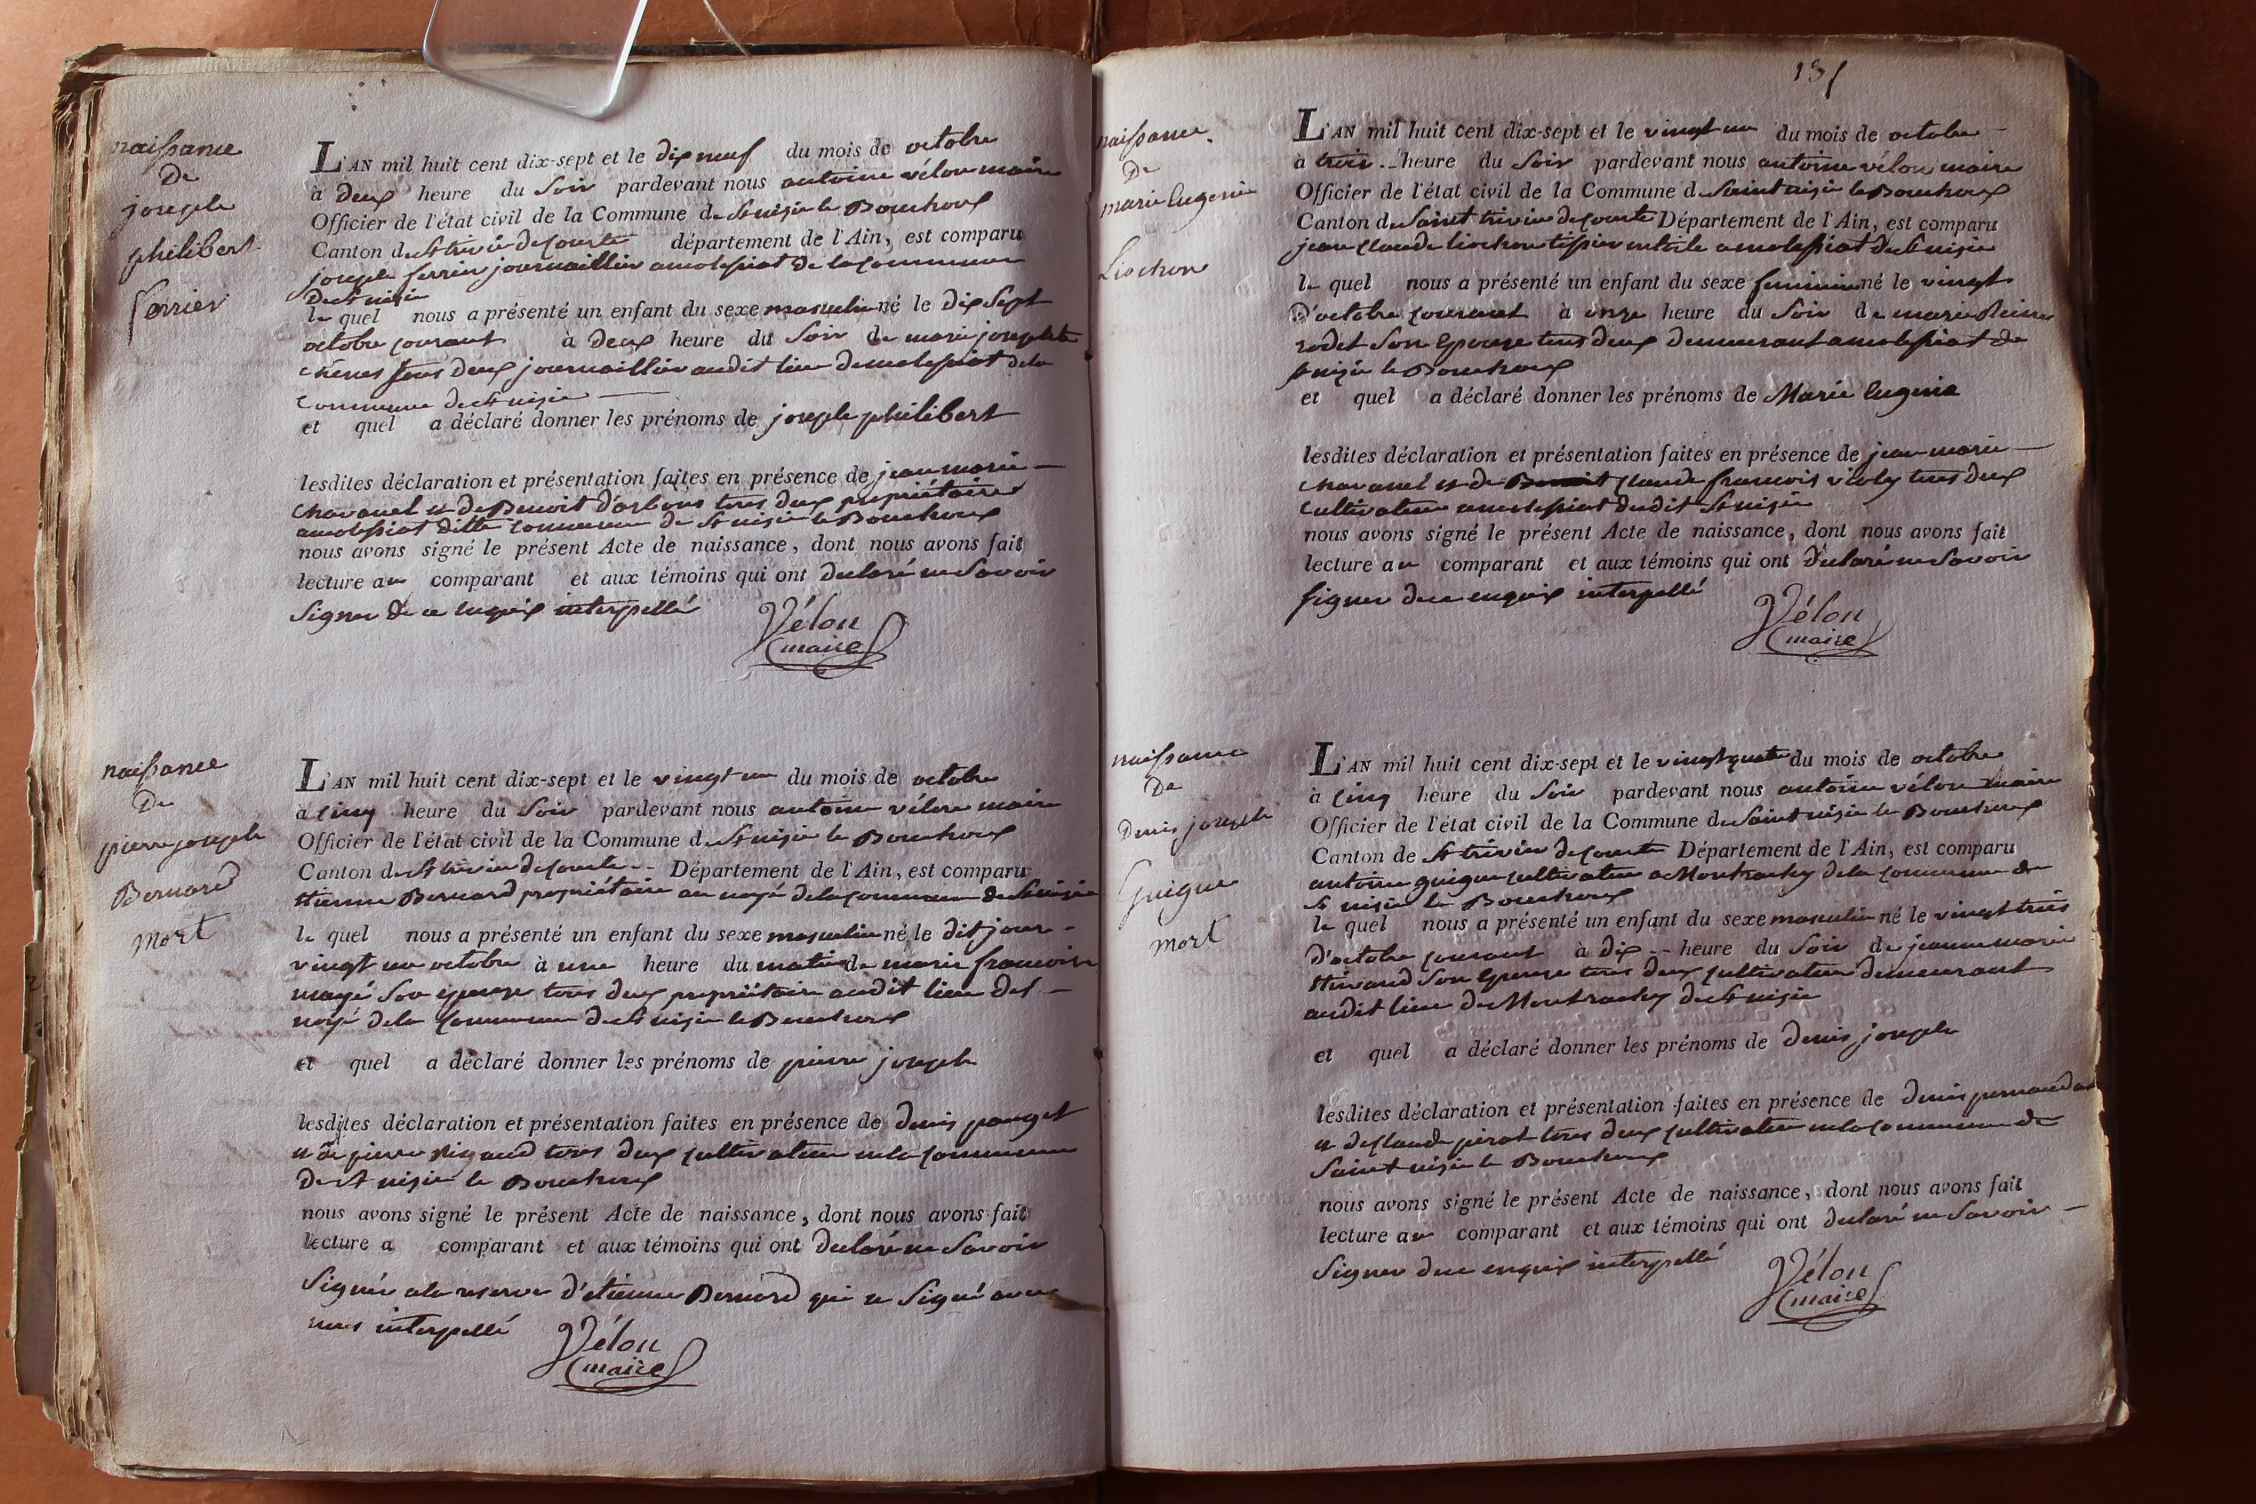 naissance
De
joseph
philibert
ferrier
L'AN mil huit cent dix-sept et le dix neuf du mois de octobre
à Deux heure du Soir pardevant nous antoine vélon maire
Officier de l'état civil de la Commune de St nizie le Bouchoux
Canton de St trivié de Courte département de l'Ain, est comparu
joseph ferrier journaillier a molessiat de la commune
De St nizie
le quel nous a présenté un enfant du sexe masculin né le Dix Sept
octobre courant à Deux heure du Soir de marie josephte
tous Deux journaillier audit lieu de molessiat de la
Commune de St nizie
et quel a déclaré donner les prénoms de joseph philibert
lesdites déclaration et présentation faites en présence de jean marie
chavanel et de Benoit d'arbons tous deux propriétaires
a molessiat ditte commune de St nizie le Bouchoux
nous avons signé le présent Acte de naissance, dont nous avons fait
lecture au comparant et aux témoins qui ont declaré ne Savoir
Signer de ce enquix interpellé
Vélon
maire
naissance
De
pierre joseph
Bernard
mort
L'AN mil huit cent dix-sept et le vingt un du mois de octobre
à Cinq heure du Soir pardevant nous antoine vélon maire
Officier de l'état civil de la Commune de St nizie le Bouchoux
Canton de St trivié de Courte Département de l'Ain, est comparu
etienne Bernard propriétaire au noyé de la commune de St nizie
le quel nous a présenté un enfant du sexe masculin né le dit jour
vingt un octobre à une heure du matin de marie francoise
mayé Son epouse tous deux propriétaire audit lieu del
noyé de la Commune de St nizie le Bouchoux
et quel a déclaré donner les prénoms de pierre joseph
lesdites déclaration et présentation faites en présence de denis pouget
et de pierre rigaud tous deux cultivateur en la commune
De St nizie le Bouchoux
nous avons signé le présent Acte de naissance, dont nous avons fait
lecture a comparant et aux témoins qui ont declaré ne Savoir
Signér a la reserve d'etienne Bernard qui a Signé avec
nous interpellé
Vélon
maire
naissance
De
marie Eugenie
Liochon
L'AN mil huit cent dix-sept et le vingt un du mois de octobre
à trois heure du Soir pardevant nous antoine vélon maire
Officier de l'état civil de la Commune de Saint nizie le Bouchoux
Canton de Saint trivié de Courte Département de l'Ain, est comparu
jean claude liochon tissier en toile a molessiat de St nizie
le quel nous a présenté un enfant du sexe feminin né le vingt
D'octobre courant à onze heure du Soir de marie Reine
rodet Son epouse tous deux demeurant a molessiat de
St nizie le Bouchoux
et quel a déclaré donner les prénoms de Marie Eugenie
lesdites déclaration et présentation faites en présence de jean marie
chavanel et de Benoit claude francois violy tous deux
cultivateur a molessiat dudit St nizie
nous avons signé le présent Acte de naissance, dont nous avons fait
lecture au comparant et aux témoins qui ont declaré ne Savoir
signer de ce enquix interpellé
Vélon
maire
naissance
De
Denis joseph
Guigue
mort
L'AN mil huit cent dix-sept et le vingt quatre du mois de octobre
à Cinq heure du Soir pardevant nous antoine vélon maire
Officier de l'état civil de la Commune de Saint nizie le Bouchoux
Canton de St trivié de Courte Département de l'Ain, est comparu
antoine guigue cultivateur a Montrachy de la commune de
St nizie le Bouchoux
le quel nous a présenté un enfant du sexe masculin né le vingt trois
D'octobre courant à dix heure du Soir de jeanne marie
Son epouse tous deux cultivateur demeurant
audit lieu de Montrachy de St nizie
et quel a déclaré donner les prénoms de denis joseph
lesdites déclaration et présentation faites en présence de denis
et de claude perat tous deux cultivateur en la commune de
Saint nizie le Bouchoux
nous avons signé le présent Acte de naissance, dont nous avons fait
lecture au comparant et aux témoins qui ont declaré ne Savoir
Signer de ce enquix interpellé
Vélon
maire